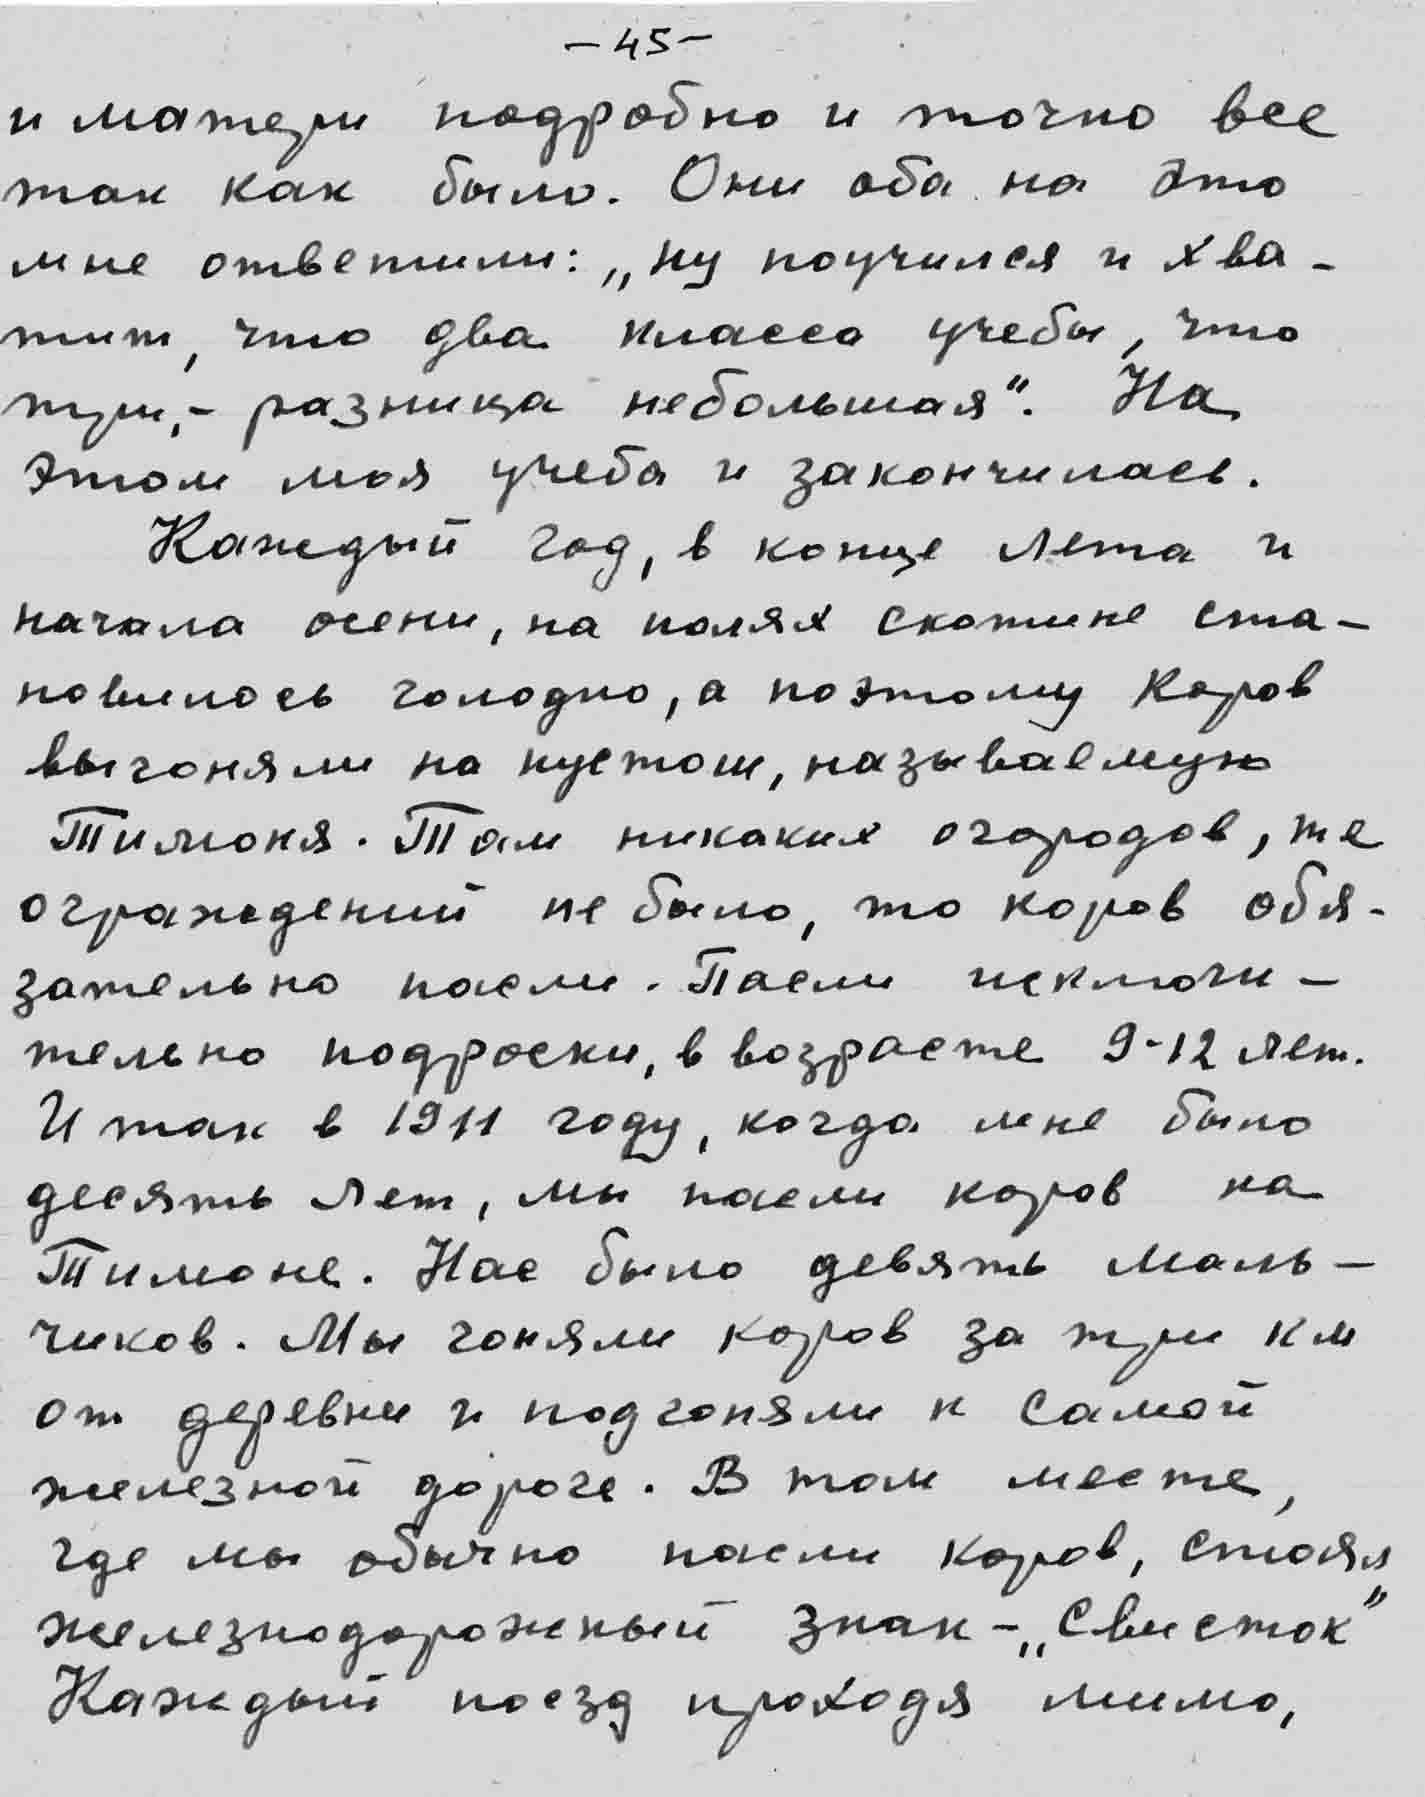 -45-
и матери подробно и точно все
так как было. Они оба на это
мне ответили: „ну поучился и хва-
тит, что два класса учебы, что
три,- разница небольшая“. На
этом моя учеба и закончилась.
Каждый год, в конце лета и
начала осени, на полях скотине ста-
новилось голодно, а поэтому коров
выгоняли на пустош, называемую
Тимоня. Там никаких огородов, же
ограждений не было, то коров обя-
зательно пасли. Пасли исключи-
тельно подроски, в возрасте 9-12 лет.
И так в 1911 году, когда мне было
десять лет, мы пасли коров на
Тимоне. Нас было девять маль-
чиков. Мы гоняли коров за три км
от деревни и подгоняли к самой
железной дороге. В том месте,
где мы обычно пасли коров, стоял
железнодорожный знак-„Свисток“
Каждый поезд проходя мимо,